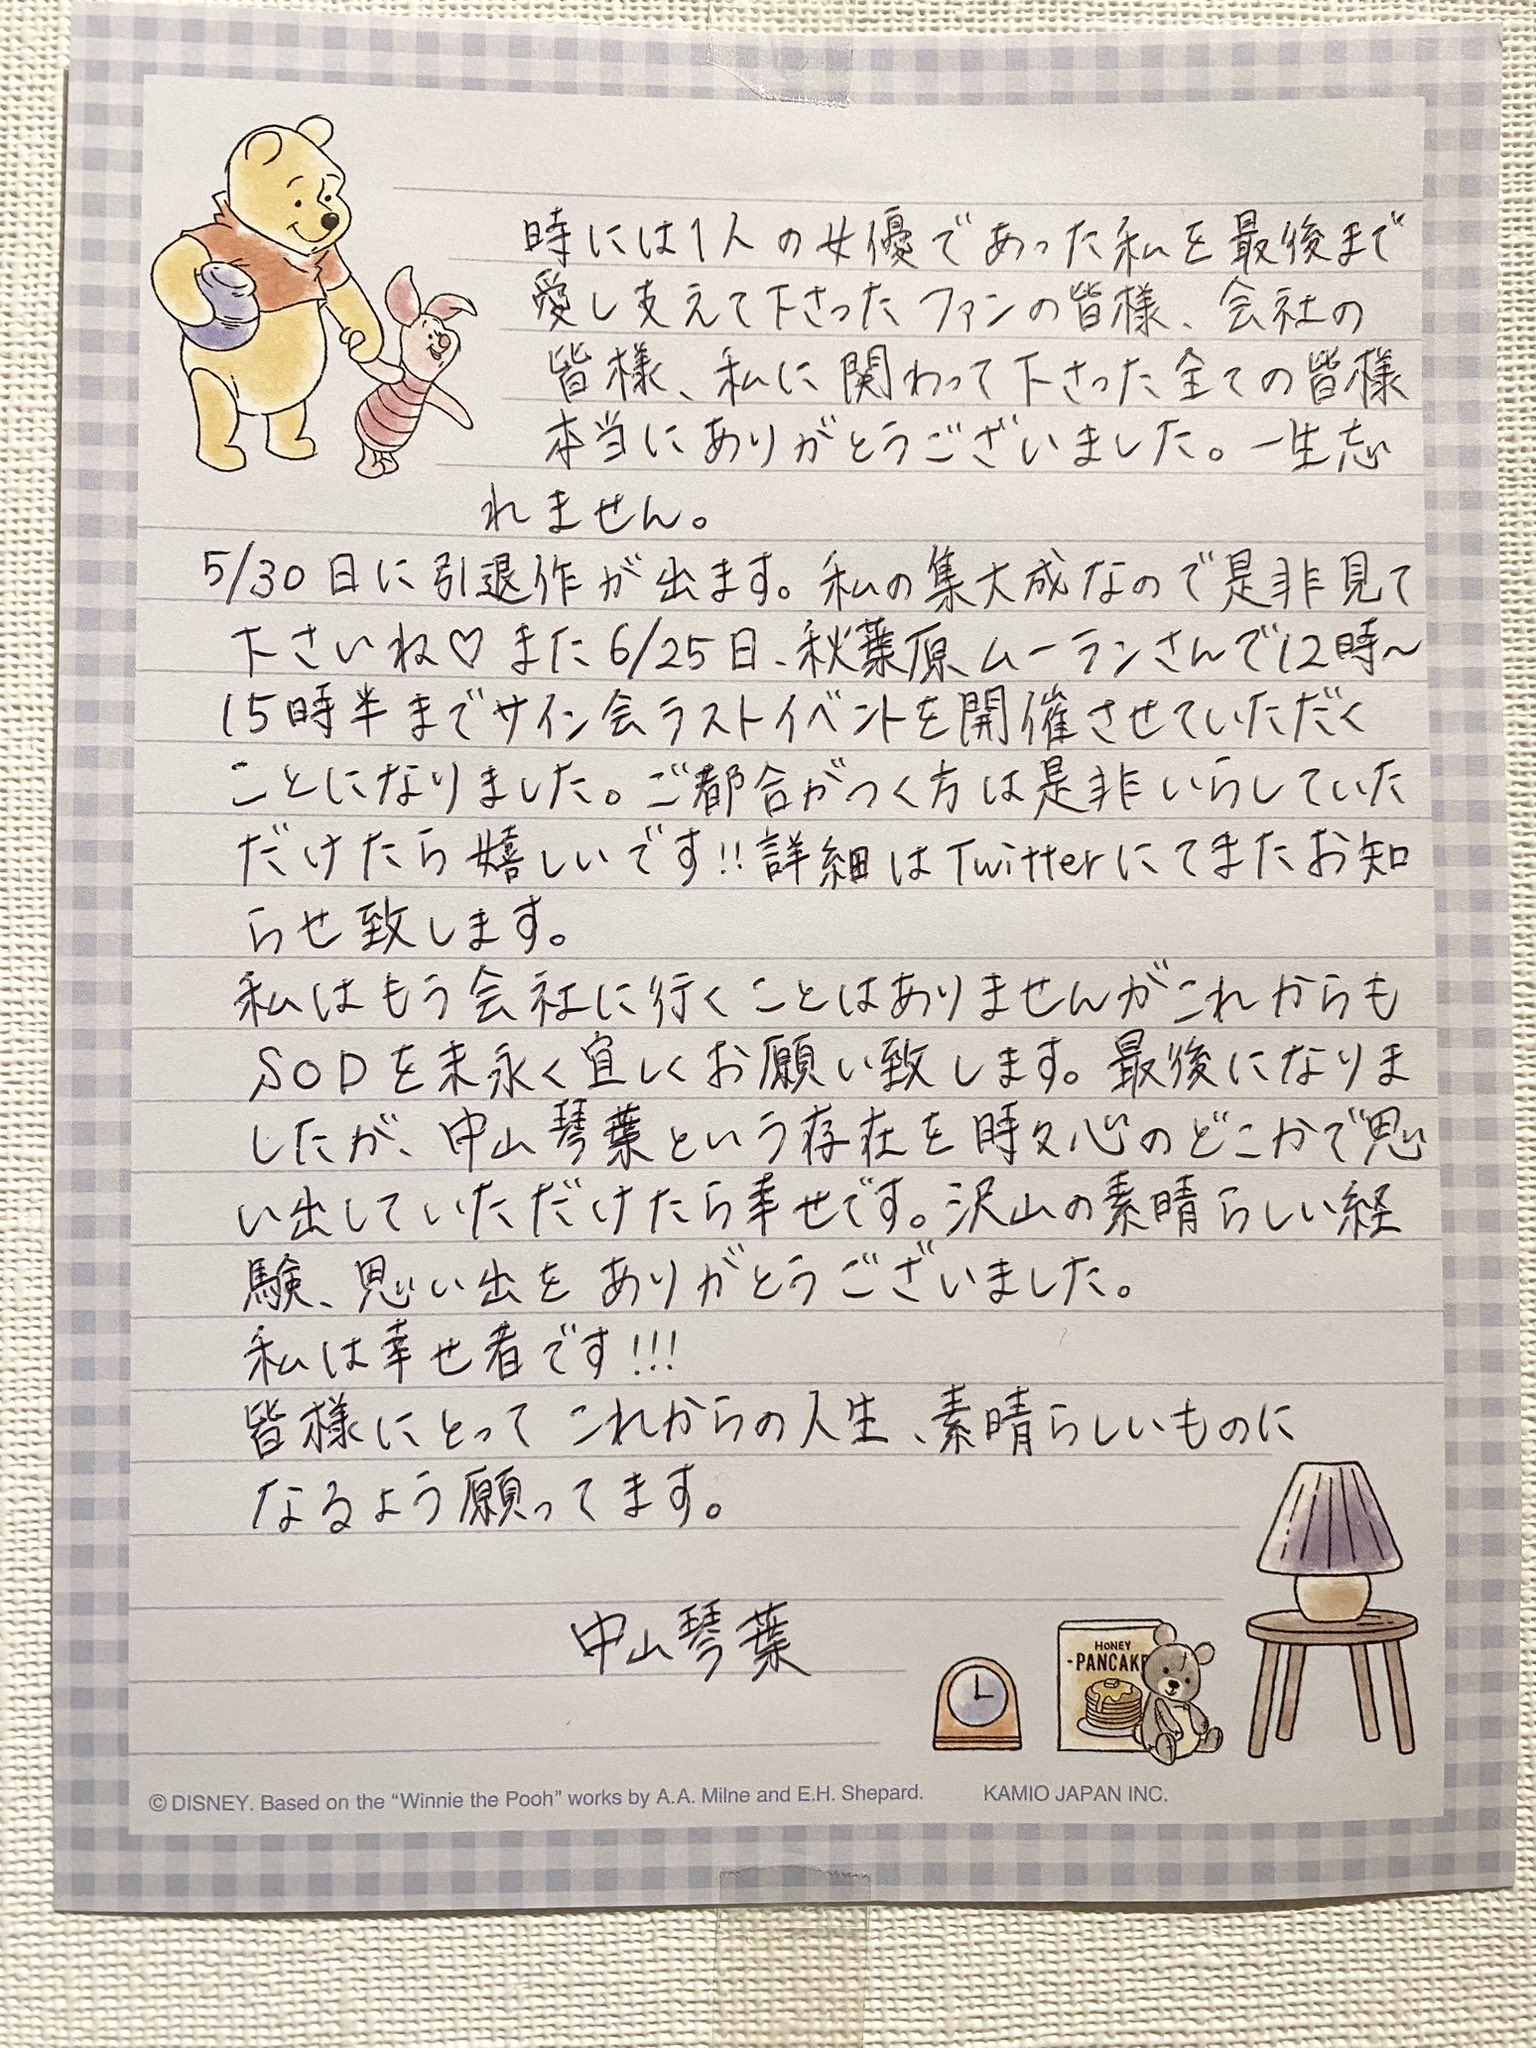 時には1人の女優であった私を最後まで
愛し支えて下さったファンの皆様、会社の
皆様、私に関わって下さった全ての皆様
本当にありがとうございました。一生忘
れません。
5/30日に引退作が出ます。私の集大成なので是非見て
下さいね♡また6/25日、秋葉原ムーランさんで12時〜
15時半までサイン会ラストイベントを開催させていただく
ことになりました。ご都合がつく方は是非いらしていた
だけたら嬉しいです!!詳細はTwitterにてまたお知
らせ致します。
私はもう会社に行くことはありませんがこれからも
SODを末永く宜しくお願い致します。最後になりま
したが、中山琴葉という存在を時々心のどこかで思
い出していただけたら幸せです。沢山の素晴らしい経
験、思い出をありがとうございました。
私は幸せ者です!!!
皆様にとってこれからの人生、素晴らしいものに
なるよう願ってます。
中山琴葉
HONEY
-PANCAKE
© DISNEY. Based on the “Winnie the Pooh” works by A.A. Milne and E.H. Shepard. KAMIO JAPAN INC.